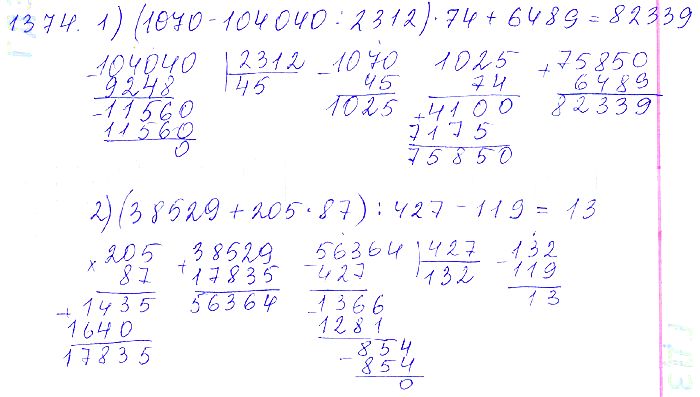 1374. 1) (1070 - 104040 : 2312) · 74 + 6489 = 82339
-104040 | 2312 -1070 1025 +75850
9248 45 45 74 6489
-11560 1025 +4100 82339
11560 7175
0 75850
2) (38529 + 205 · 87) : 427 - 119 = 13
×205 +38529 -56364 | 427 -132
87 17835 427 132 119
+1435 56364 -1366 13
1640 1281
17835 -854
854
0